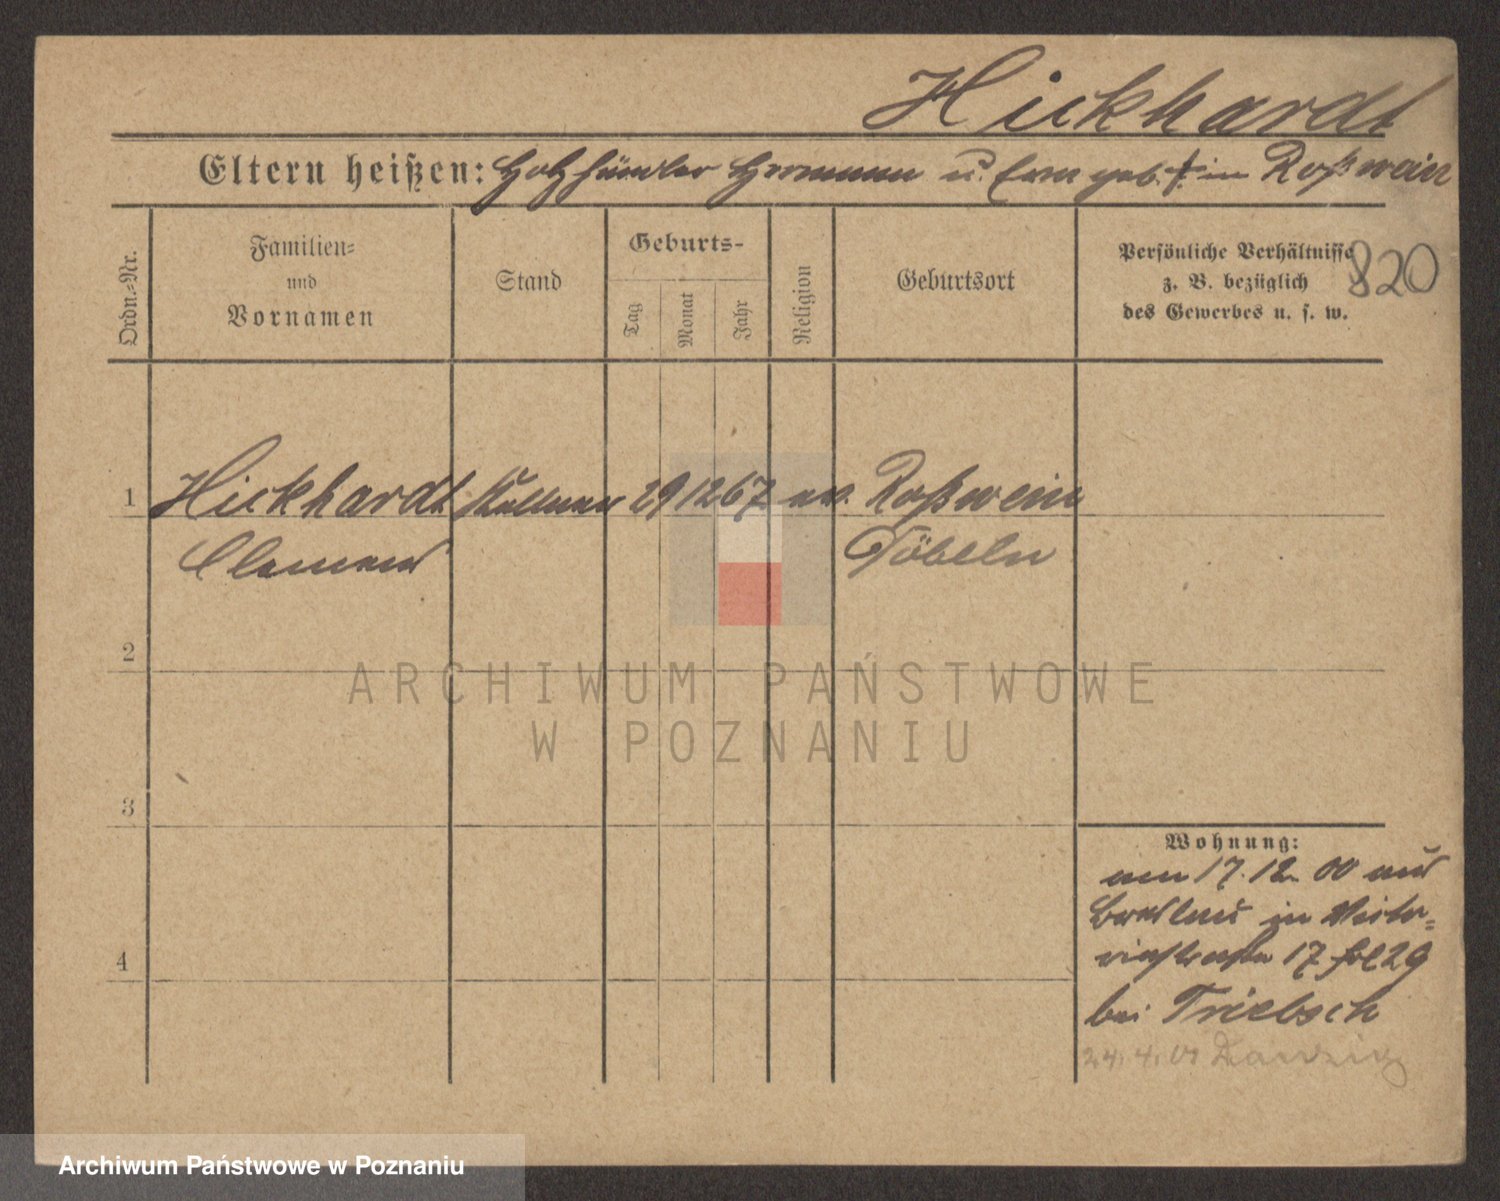 Hickhardt
Eltern heißen: Holzhändler Hermann u. geb. † in Roßwein
Ordn.-Nr.
Familien-
und
Vornamen
Stand
Geburts-
Tag
Monat
Jahr
Religion
Geburtsort
Persönliche Verhältnisse
z. B. bezüglich
des Gewerbes u. s. w.
820
1 Hickhardt Kellner 29 12 67 ev. Roßwein
Clemens Döbeln
2
3
4
Wohnung:
am 17. 12. 00 aus
Breslau in Victo-
riastraße 17 fol 29
bei Triebsch
24. 4. 01 Danzig
ARCHIWUM PAŃSTWOWE
W POZNANIU
Archiwum Państwowe w Poznaniu